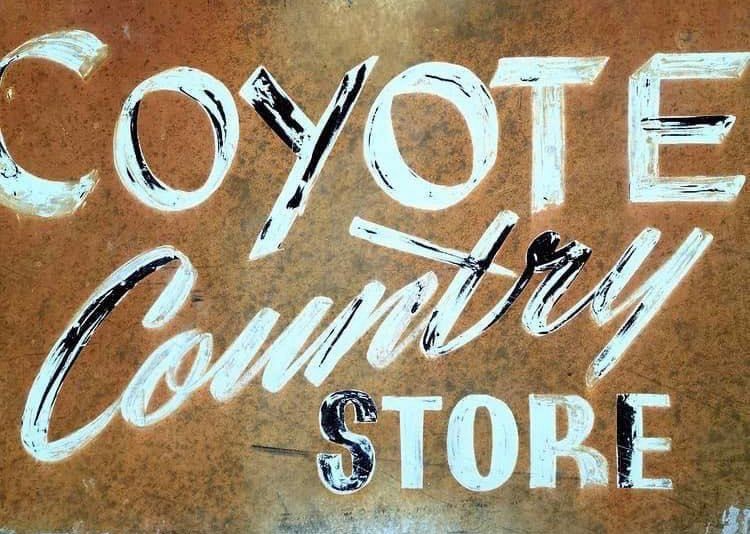 COYOTE
Country
STORE